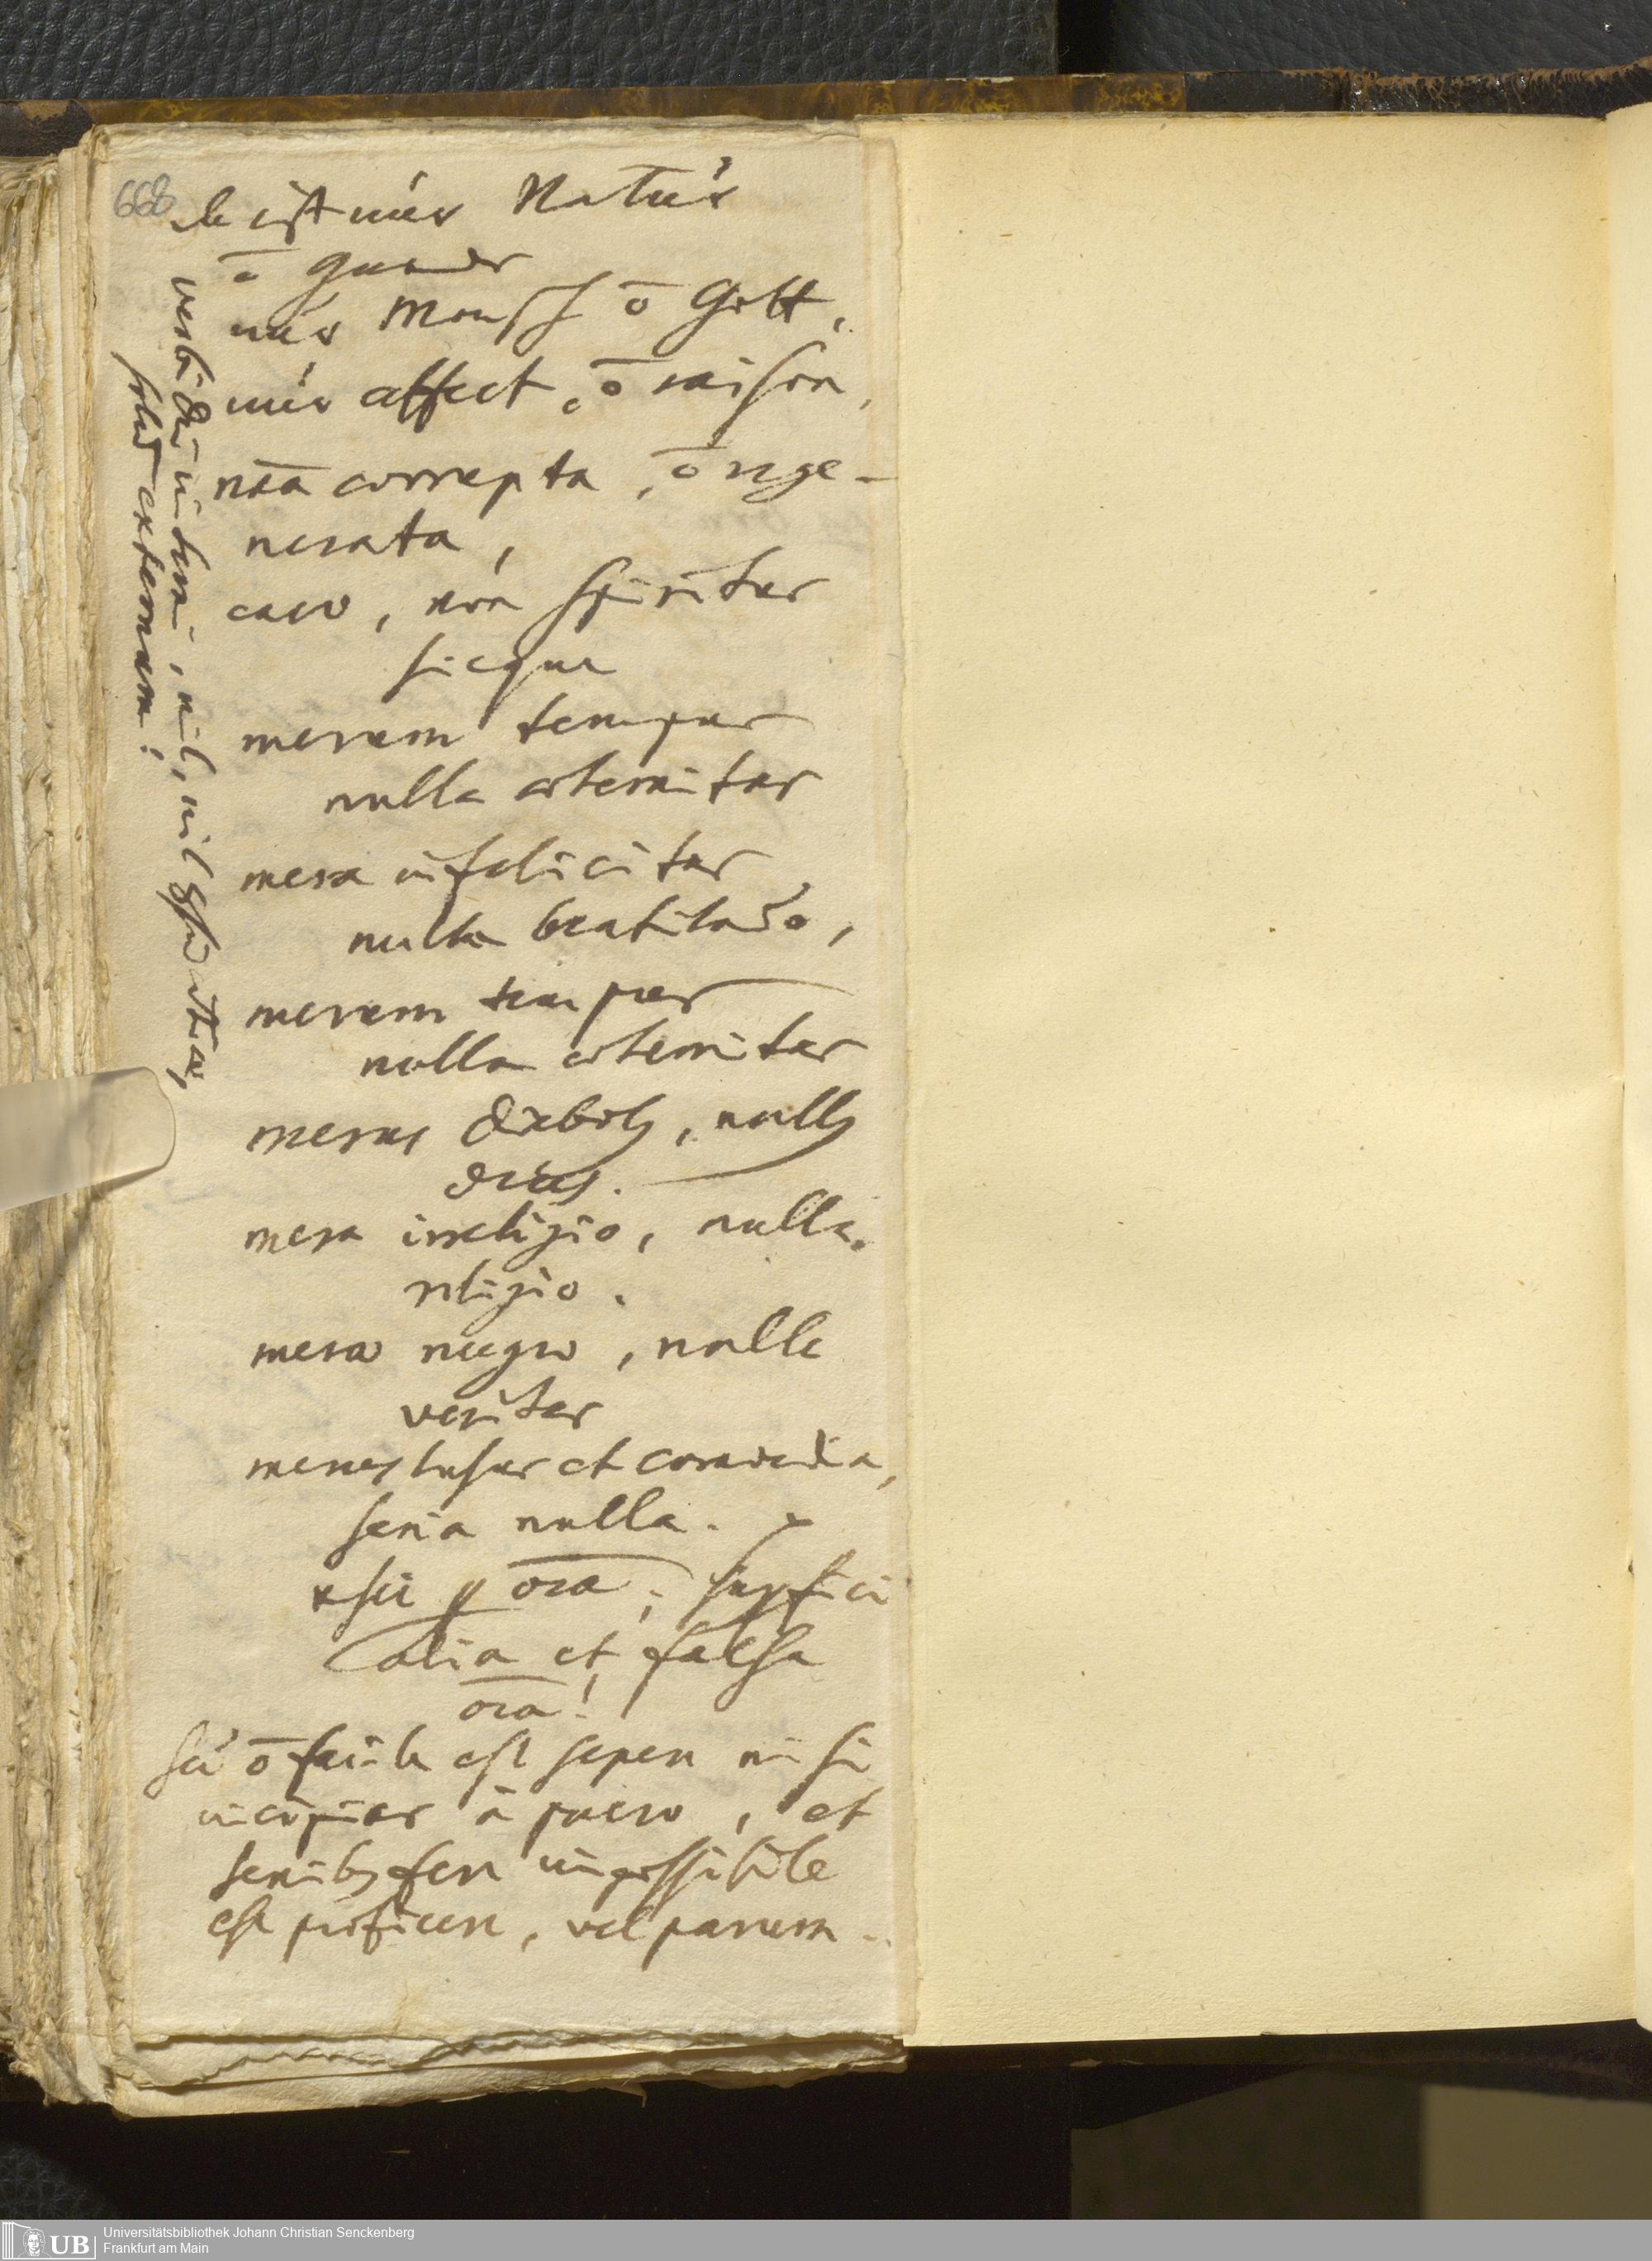 668
ist nur Natur
ō Gnade
nur Mensch ō Gott,
nur affect, ō raison,
nra correpta, ō rege-
nerata,
caro, non Spiritus
sicque
merum tempus
nulla aeternitas
mera infelicitas
nulla beatitudo,
merum tempus
nulla aeternitas
merus Diabolus, nullus
Deus.
mera irreligio, nulla
religio.
mera, nulla
veritas
merus lusus et comoedia,
seria nulla.
ora; superfici
alia et falsa
ora!
ō facile est sapere nisi
incipias à puero, et
senibus fere impossibile
est proficere, vel parum
verbi Dei interni, nil, nil
externam!
UB
Universitätsbibliothek Johann Christian Senckenberg
Frankfurt am Main